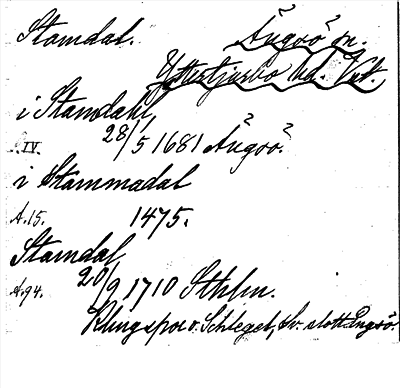 Stamdal. Ängsö sn.
Yttertjurbo hd. Vstm.
i Stamdahl,
..IV. 28/5 1681 Ängsö.
i Stammadal
A.15. 1475.
Stamdal,
A.94. 20/9 1710 Sthlm.
Klingspor o. Schlegel, Sv. slott Ängsö.